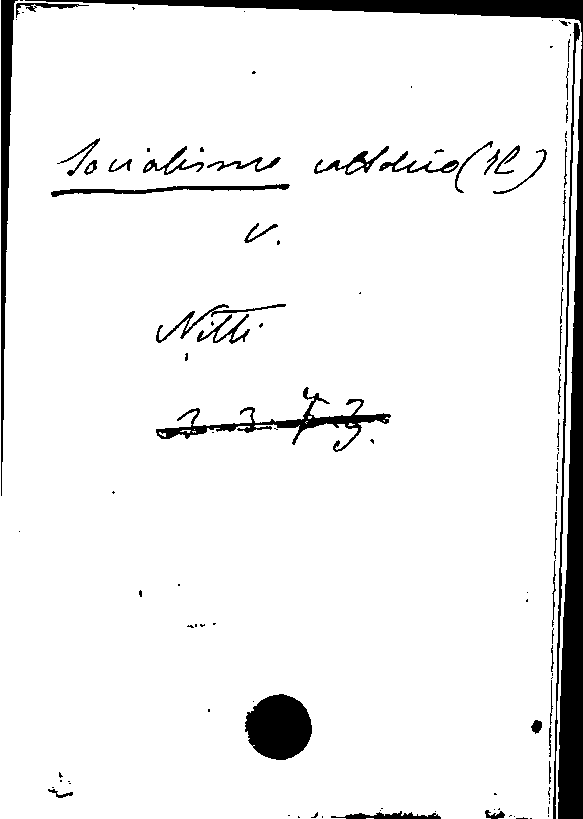 Socialismo cattolico (Il)
v.
Nitti